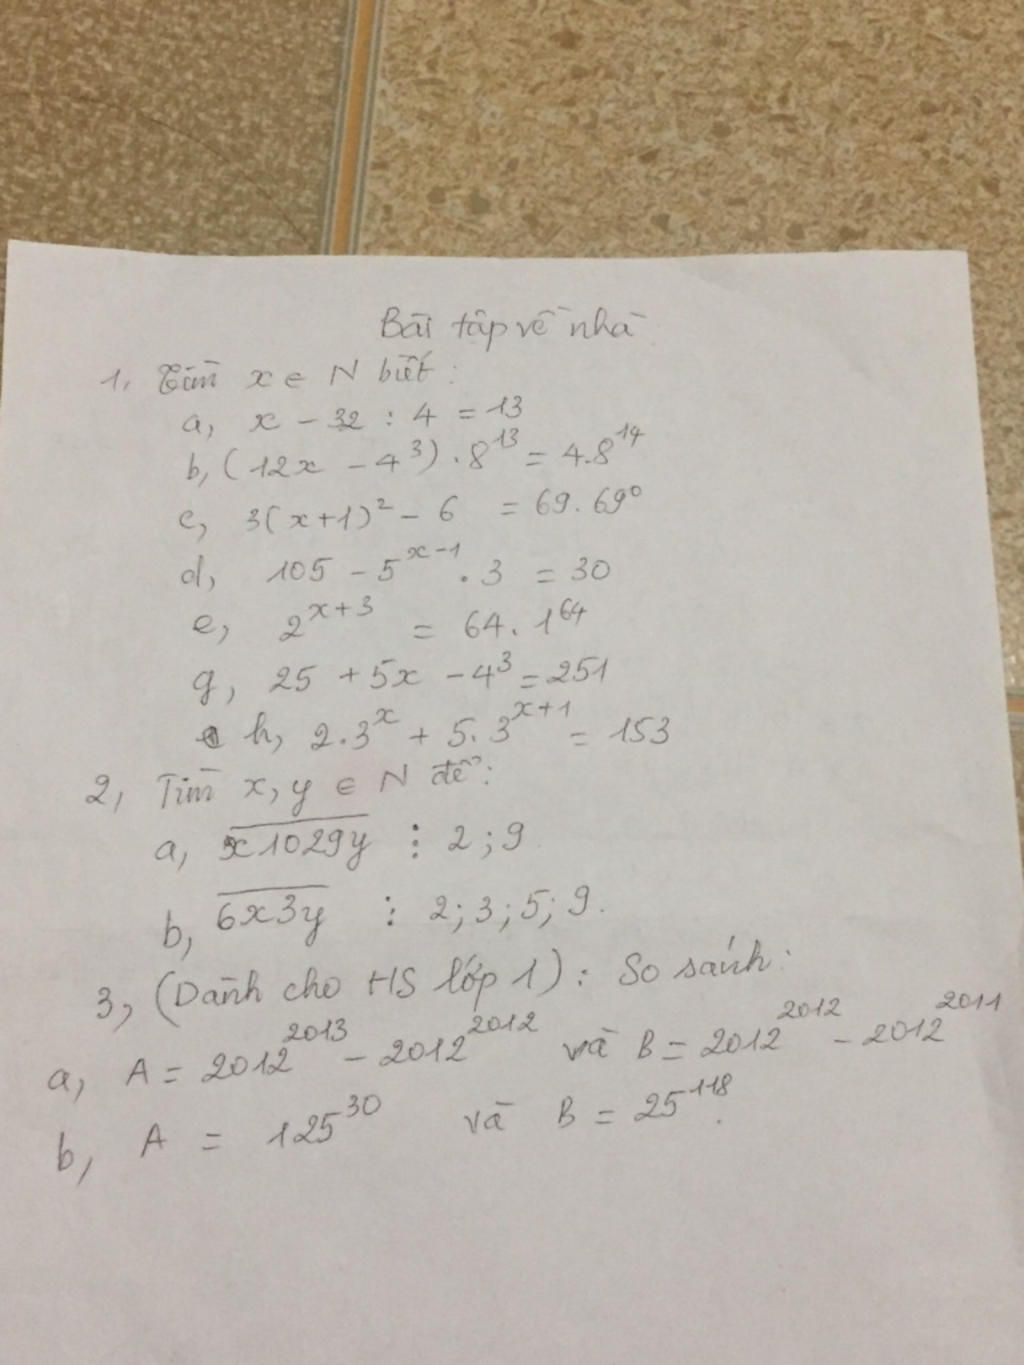 Bài tập về nhà
1, Tìm x ∈ N biết:
a, x - 32 : 4 = 13
b, (12x - 4³) . 8¹³ = 4.8¹⁴
c, 3(x+1)² - 6 = 69.69⁰
d, 105 - 5ˣ⁻¹ . 3 = 30
e, 2ˣ⁺³ = 64. 1⁶⁴
g, 25 + 5x - 4³ = 251
h, 2.3ˣ + 5.3ˣ⁺¹ = 153
2, Tìm x, y ∈ N để:
a, x1029y ⋮ 2 ; 9
b, 6x3y ⋮ 2; 3; 5; 9.
3, (Dành cho HS lớp 1): So sánh:
a, A = 2012²⁰¹³ - 2012²⁰¹² và B = 2012²⁰¹² - 2012²⁰¹¹
b, A = 125³⁰ và B = 25¹¹⁸.